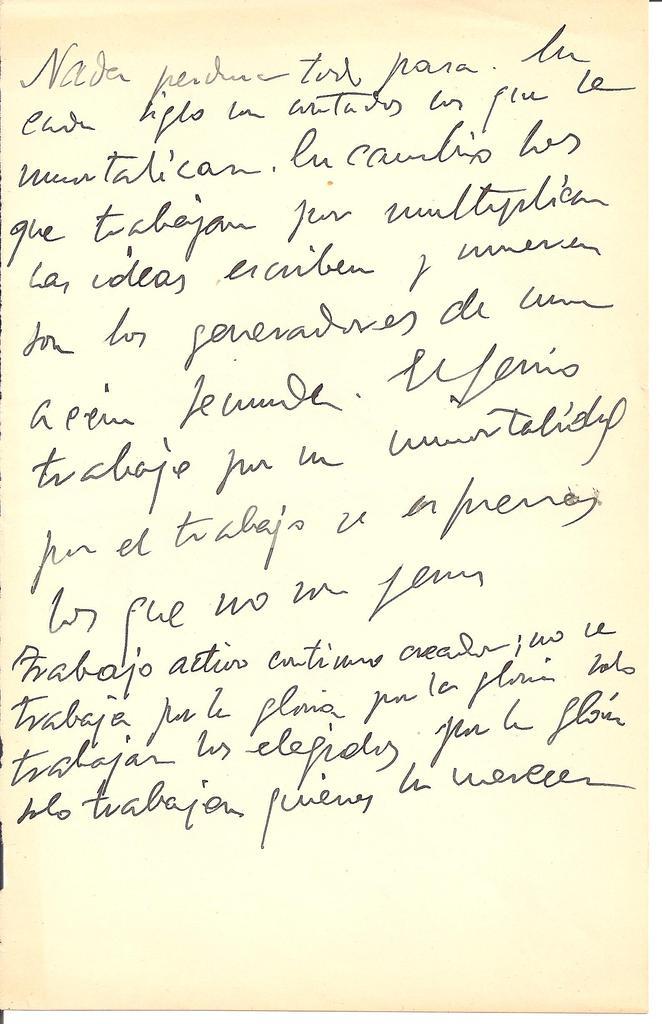 Nada perdura todo pasa. En
cada siglo son contados los que se
inmortalizan. En cambio los
que trabajan por multiplicar
las ideas escriben y mueren
son los generadores de una
acción fecunda. El genio
trabaja por su inmortalidad
por el trabajo se
los que no son genios
Trabajo activo continuo creador; no se
trabaja por la gloria por la gloria solo
trabajan los elegidos, por la gloria
solo trabajan quienes la merecen